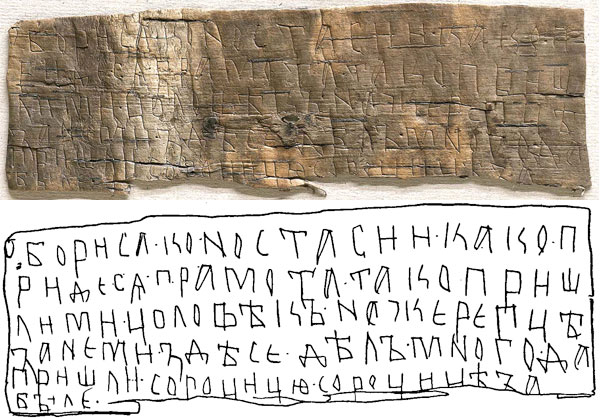 Ѿ БОРИСА·КО NОСТАСИИ·КАКО·П
РИДЕ СА·ГРАМОТА·ТАКО ПРИШ
ЛИ МИ·ЦОЛОВѢКЪ·NА ЖЕРЕПЦѢ
ЗАNЕ МИ·ЗДѢСЕ·ДѢЛЪ·МNОГО·ДА
ПРИШЛИ·СОРОЦИЦЮ·СОРОЦИЦѢ ЗА
БЪІЛЕ·